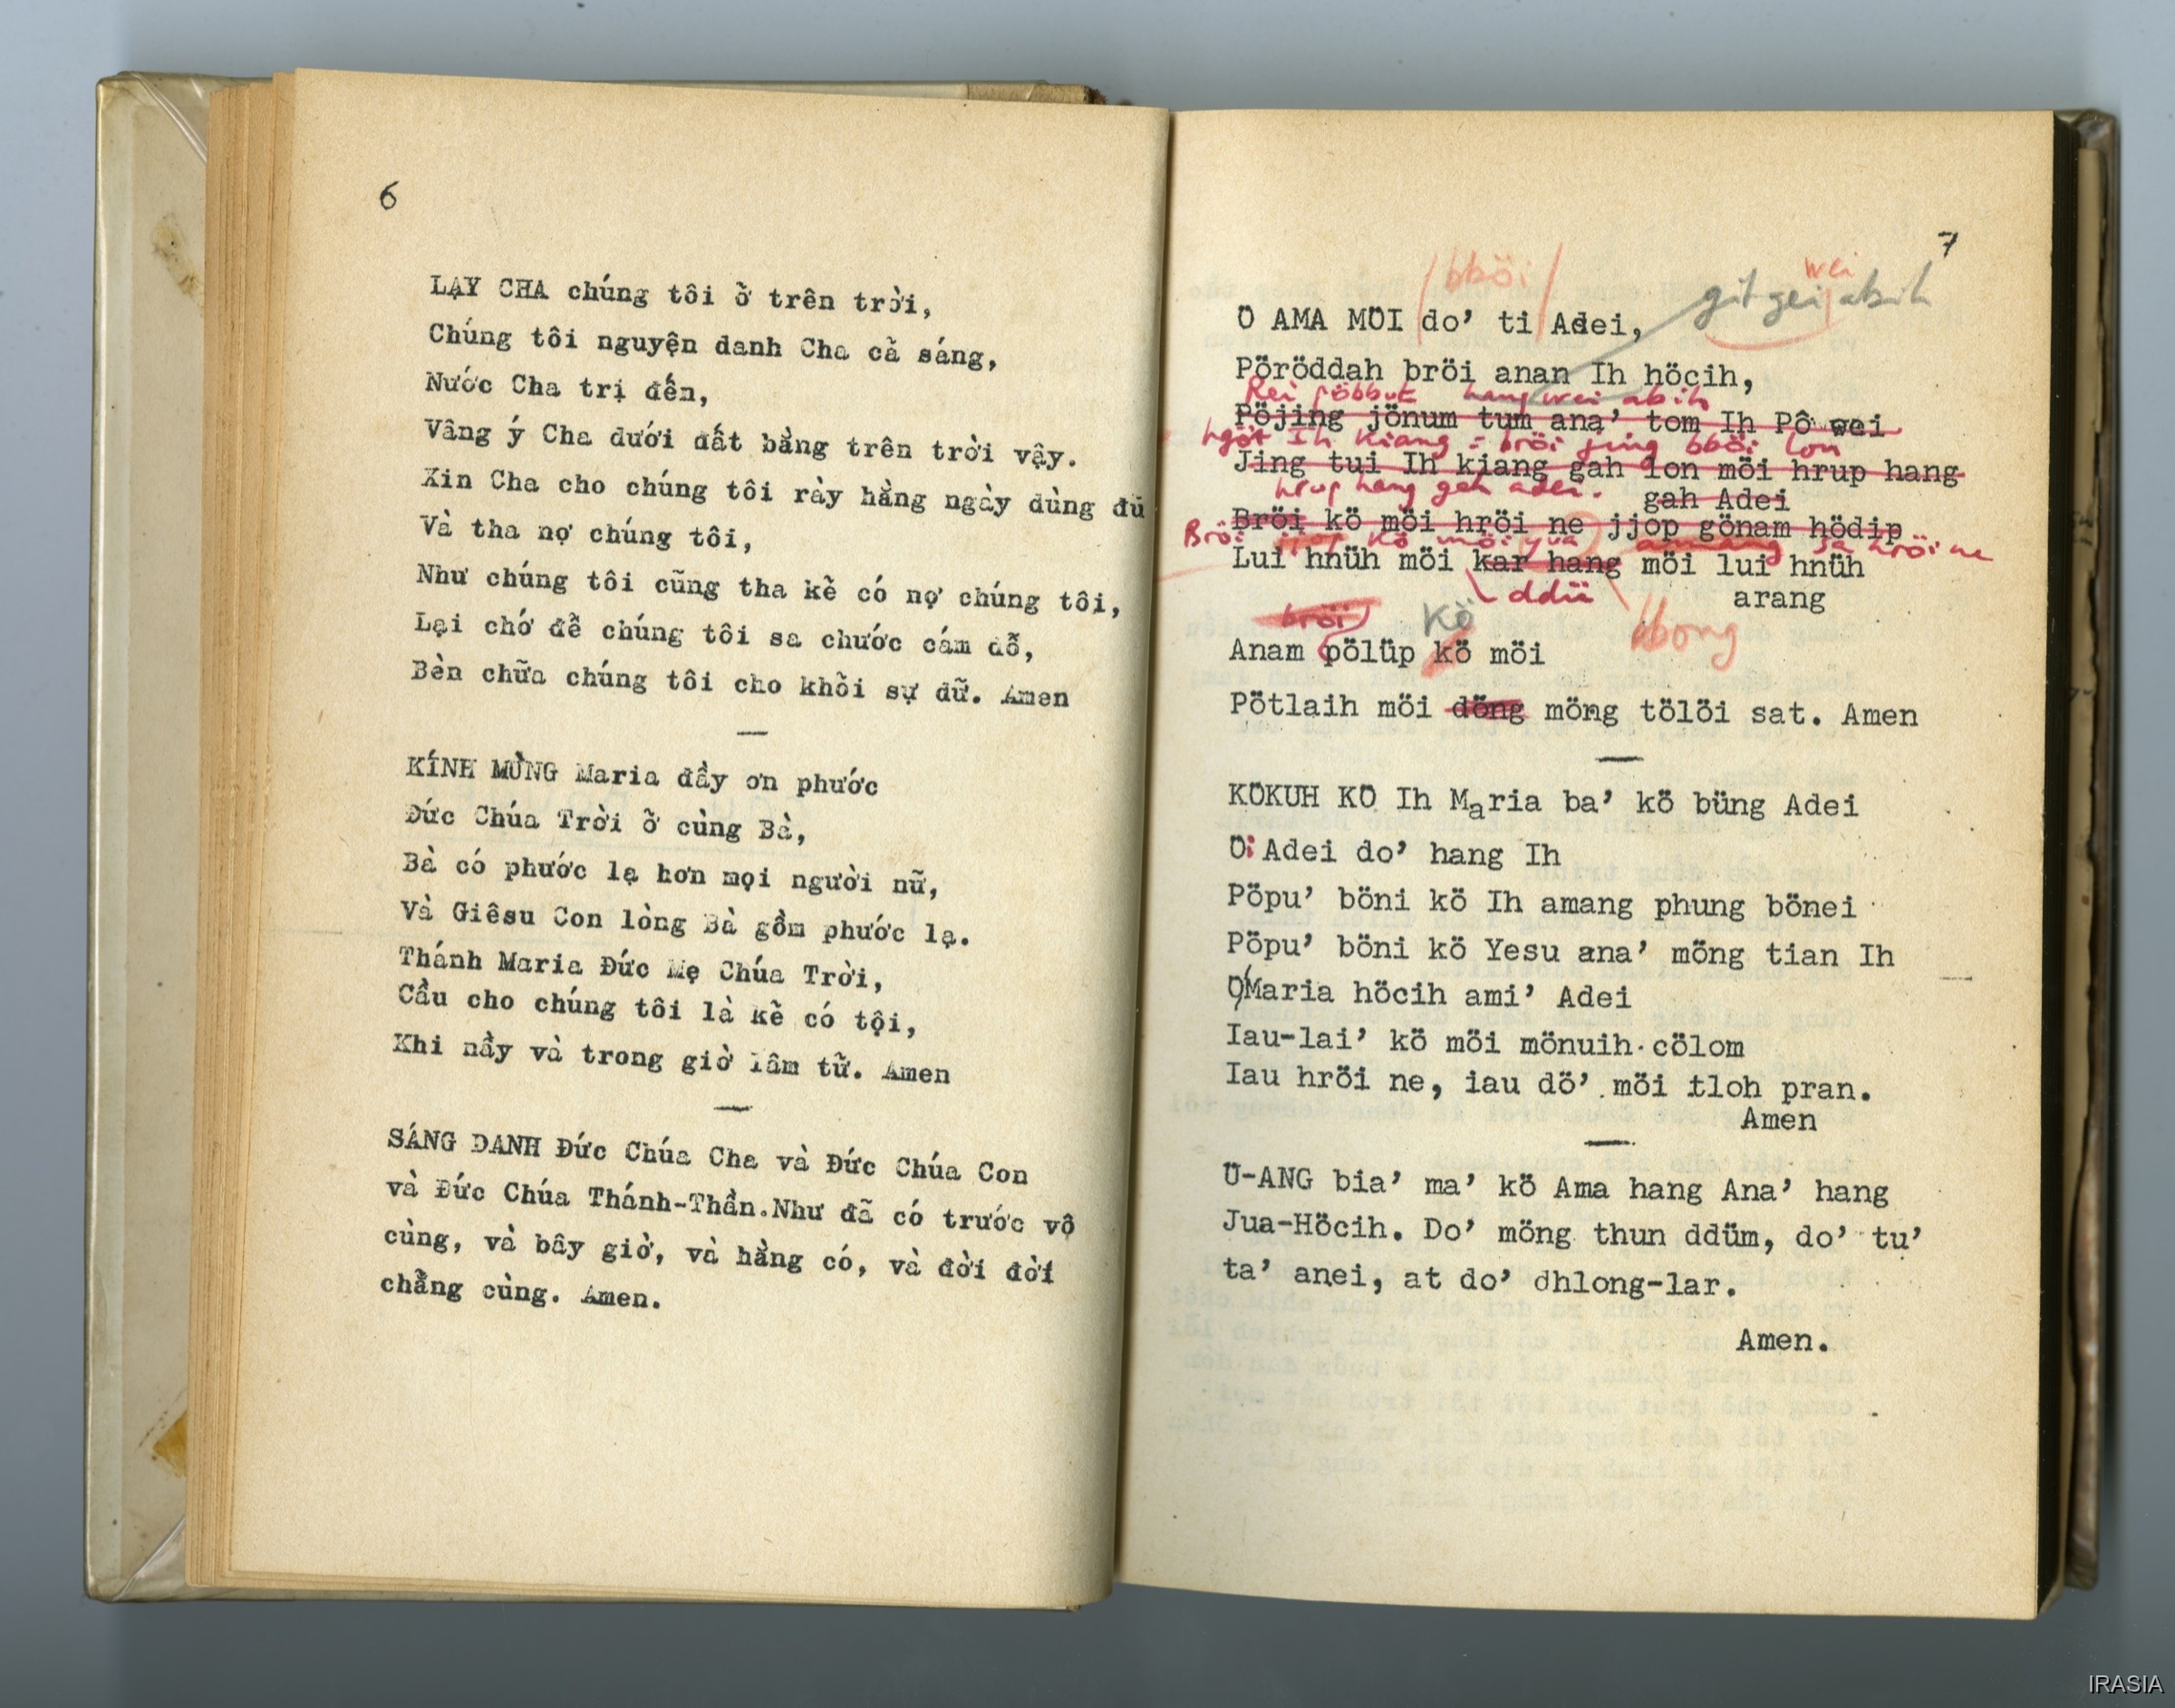 6
LẠY CHA chúng tôi ở trên trời,
Chúng tôi nguyện danh Cha cả sáng,
Nước Cha trị đến,
Vâng ý Cha dưới đất bằng trên trời vậy.
Xin Cha cho chúng tôi rày hằng ngày dùng đủ
Và tha nợ chúng tôi,
Như chúng tôi cũng tha kẻ có nợ chúng tôi,
Lại chớ để chúng tôi sa chước cám dỗ,
Bèn chữa chúng tôi cho khỏi sự dữ. Amen
KÍNH MỪNG Maria đầy ơn phước
Đức Chúa Trời ở cùng Bà,
Bà có phước lạ hơn mọi người nữ,
Và Giêsu Con lòng Bà gồm phước lạ.
Thánh Maria Đức Mẹ Chúa Trời,
Cầu cho chúng tôi là kẻ có tội,
Khi nầy và trong giờ lâm tử. Amen
SÁNG DANH Đức Chúa Cha và Đức Chúa Con
và Đức Chúa Thánh-Thần.Như đã có trước vô
cùng, và bây giờ, và hằng có, và đời đời
chẳng cùng. Amen.
7
bböi
wei
git gei abih
Ö AMA MÖI do’ ti Adei,
Pöröddah bröi anan Ih höcih,
Rei pöbbut hang wei abih
Pöjing jönum tum ana’ tom Ih Pô wei
Ih kiang = bröi jing bböi lon
Jing tui Ih kiang gah lon möi hrup hang
hrup hang gah adei.
gah Adei
Bröi kö möi hröi ne jjop gönam hödip
Bröi jjop kö möi yua ammang sa hröi ne
Lui hnüh möi kar hang möi lui hnüh
ddü
arang
bröi
kö
bong
Anam pölüp kö möi
Pötlaih möi döng möng tölöi sat. Amen
KÖKUH KÖ Ih Maria ba’ kö büng Adei
Ö: Adei do’ hang Ih
Pöpu’ böni kö Ih amang phung bönei
Pöpu’ böni kö Yesu ana’ möng tian Ih
O Maria höcih ami’ Adei
Iau-lai’ kö möi mönuih cölom
Iau hröi ne, iau dö’ möi tloh pran.
Amen
Ü-ANG bia’ ma’ kö Ama hang Ana’ hang
Jua-Höcih. Do’ möng thun ddüm, do’ tu’
ta’ anei, at do’ dhlong-lar.
Amen.
IRASIA